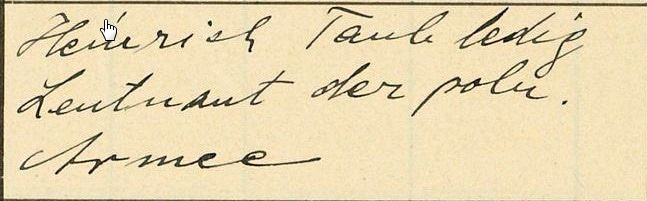 Heinrich Taub ledig
Leutnant der poln.
Armee